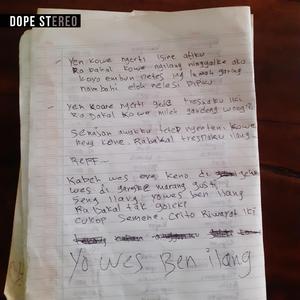 DOPE STEREO
- Yen kowe ngerti isine atiku
Ra bakal kowe ngilang ninggalke aku
koyo embun netes ing lemah garing
nambahi elok relesi pipiku
- Yen kowe ngerti gedhe tresnaku iki
Ra bakal kowe milih gandeng wong
Senason awakku tetep ngenteni kowe
neng kene. Rabakal tresnaku ilang
Reff...
Kabeh wes ora keno di
wes di garisake marang gusti
Seng ilang yowes ben ilang
Ra bakal tak goleki
cukop Semene. Crito Riwayat iki
Yo wes Ben ilang